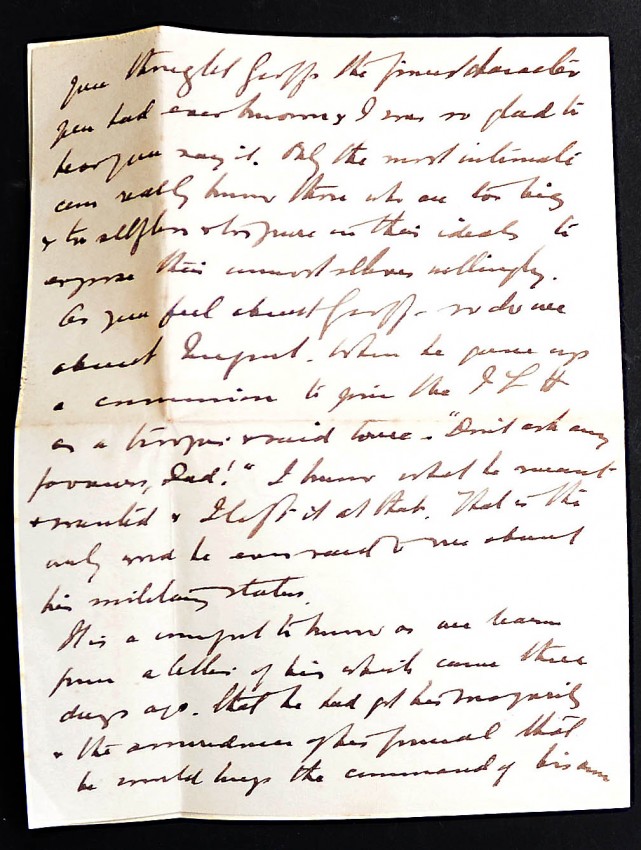 you thought Geoff the finest character
you had ever known & I was so glad to
hear you say it. Only the most intimate
can really know those who are too big
& too selfless & too pure in their ideals to
expose their inmost selves willingly.
As you feel about Geoff - so do we
about . When he gave up
a commission to join the I L H
as a trooper & said to me - "Don't ask any
favours, Dad!" I knew what he meant
& wanted & I left it at that. That is the
only word he ever said to me about
his military status.
It is a comfort to know as we learn
from a letter of his which came three
days ago. that he had got his majority
& the assurance of his General that
he would keep the command of his own